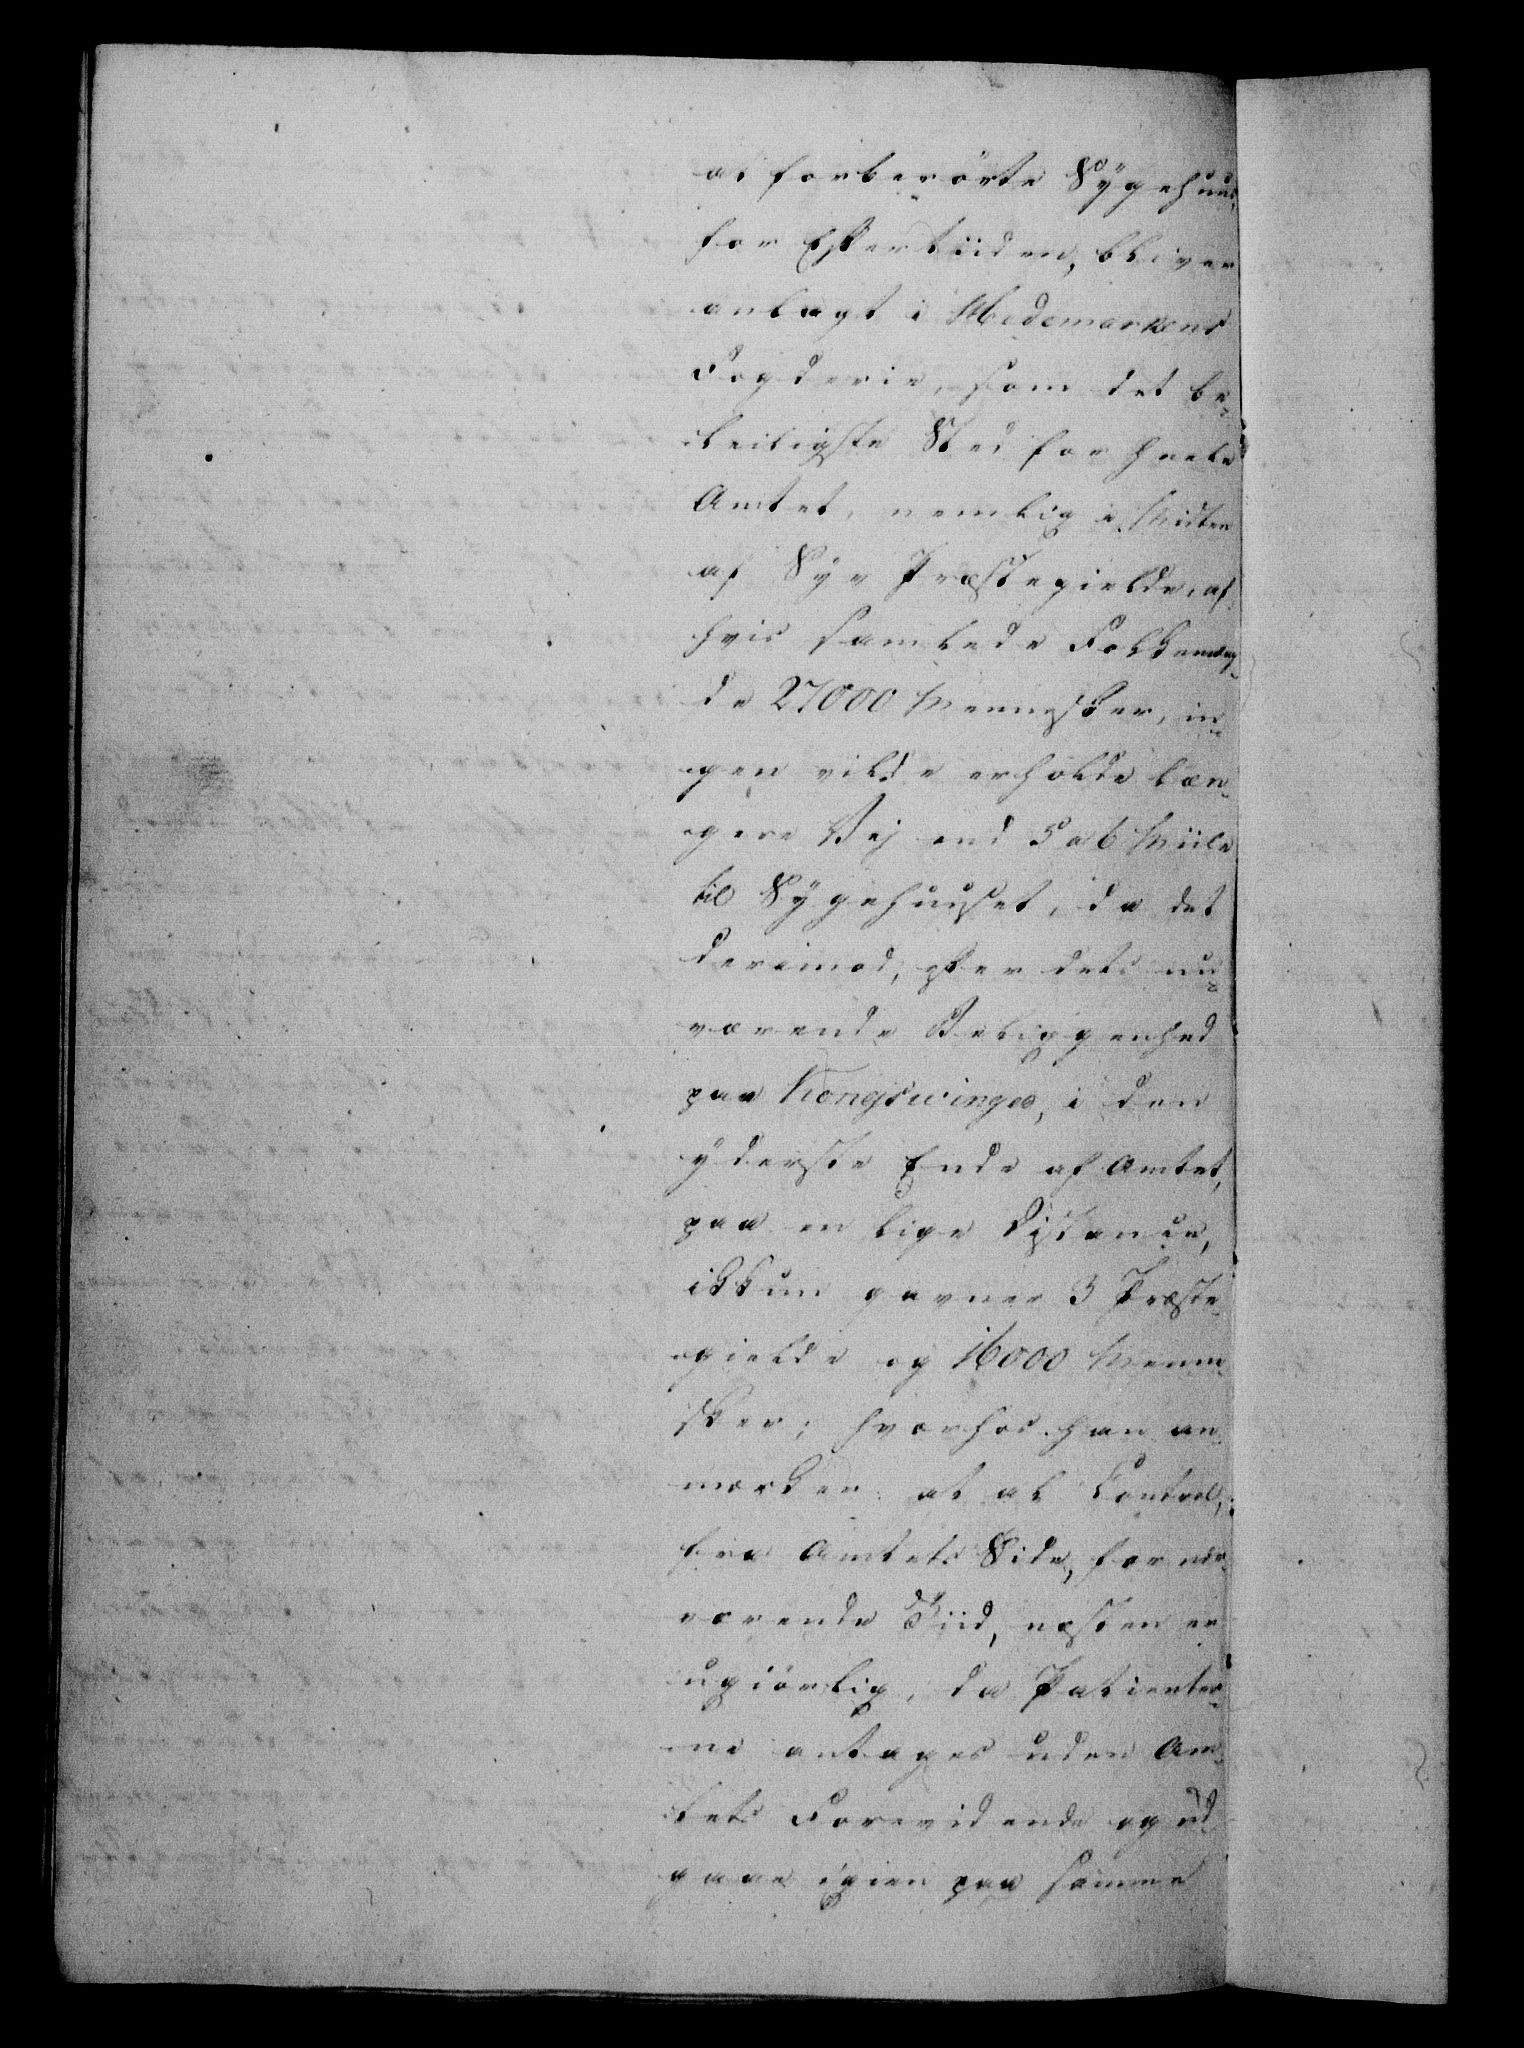 at forberörte Sÿgehuus,
for Eftertiiden, bliver
anlagt i Hedemarkens
Fogderie, som det be-
leiligste Sted for heele
Amtet, nemlig i Midten
af Syv Præstegielde, af
hvis samlede Folkemæng-
de 27000 Mennesker, in-
gen vilde erholde læn-
gere Vej end 5 a 6 Miile
til Sÿgehuuset, da det
derimod, efter dets nu-
værende Beliggenhed
paa Kongswinger, i den
ÿderste Ende af Amtet,
paa en lige Distance,
ikkun gavner 3 Præste-
gielde og 16000 Menne-
sker; hvorhos han an-
mærker: at al Control,
fra Amtets Side, for nær-
værende Tiid, næsten er
ugiörlig, da Patienter-
ne antages uden Am-
tets Forevidende og ud-
gaae igien paa samme